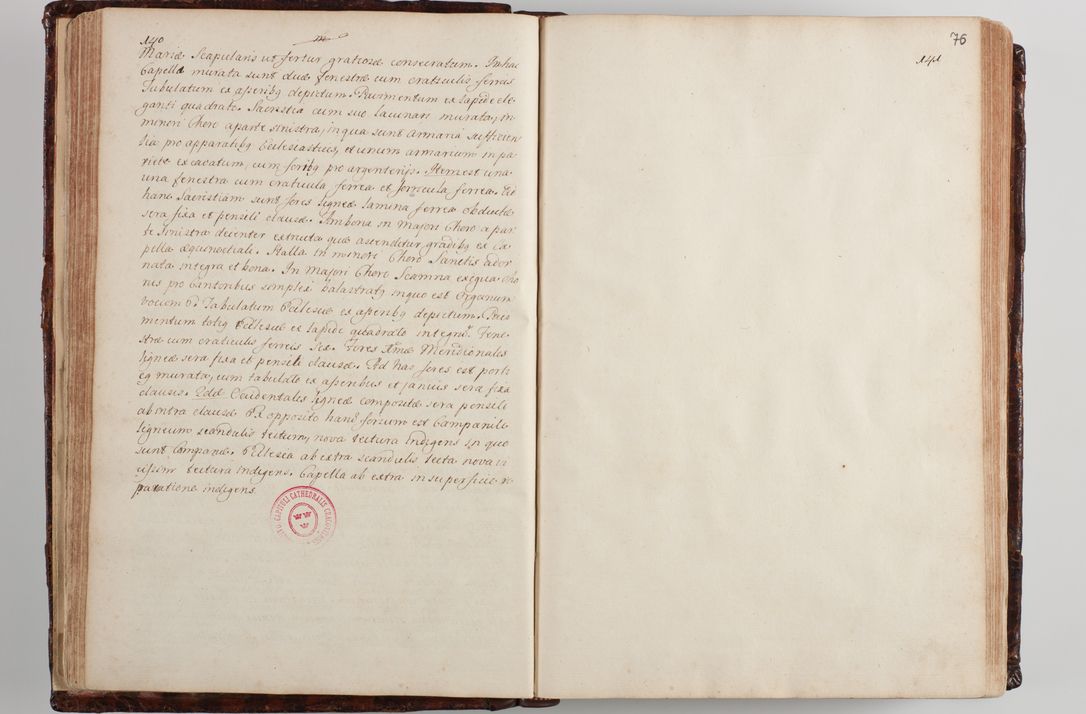 140
Mariæ Scapularis ut fertur gratiosæ consecratum. In hac
Capella murata sunt duæ fenestræ cum craticulis ferreis
Tabulatum ex asserib9 depictum. Pavimentum ex lapide ele
ganti quadrato. Sacristia cum suo lacunari murata, in
minori Choro a parte sinistra, in qua sunt armaria sufficien
tia pro apparatib9 Ecclesiasticis, et unum armarium in pa
riete excavatum, cum forib9 pro argenterijs. Item est una
una fenestra cum craticula ferrea et fornicula ferrea. Ad
hanc Sacristiam sunt fores ligneæ lamina ferrea obductæ
sera fixa et pensili clausæ. Ambona in Majori Choro a par
te sinistra decenter extructa quæ ascenditur gradib9 ex Ca
pella æquinoctiali. Stalla in minore Choro Sanctis ador
nata integra et bona. In Majori Choro Scamna exequa. Cho
rus pro Cantoribus simplex balastrat9 in quo est Organum
vocum 6. Tabulatum Ecclesiæ ex asserib9 depictum. Pavi
mentum toti9 Ecclesiæ ex lapide quadrato integrũ. Fene
stræ cum craticulis ferreis sex. Fores Meridionales
ligneæ sera fixa et pensili clausæ. Ad has fores est porti
c9 murata, cum tabulato ex asseribus et januis sera fixa
clausis. Occidentales ligneæ compositæ sera pensili
ab intra clausæ Ex opposito harũ forium est Campanile
ligneum scandulis tectum, nova tectura indigens in quo
sunt Campanæ. Ecclesia ab extra scandulis tecta nova vi
cissim tectura indigens. Capella ab extra in superficie re
paratione indigens
CAPITULI CATHEDRALIS CRACOVIENSIS
76
141